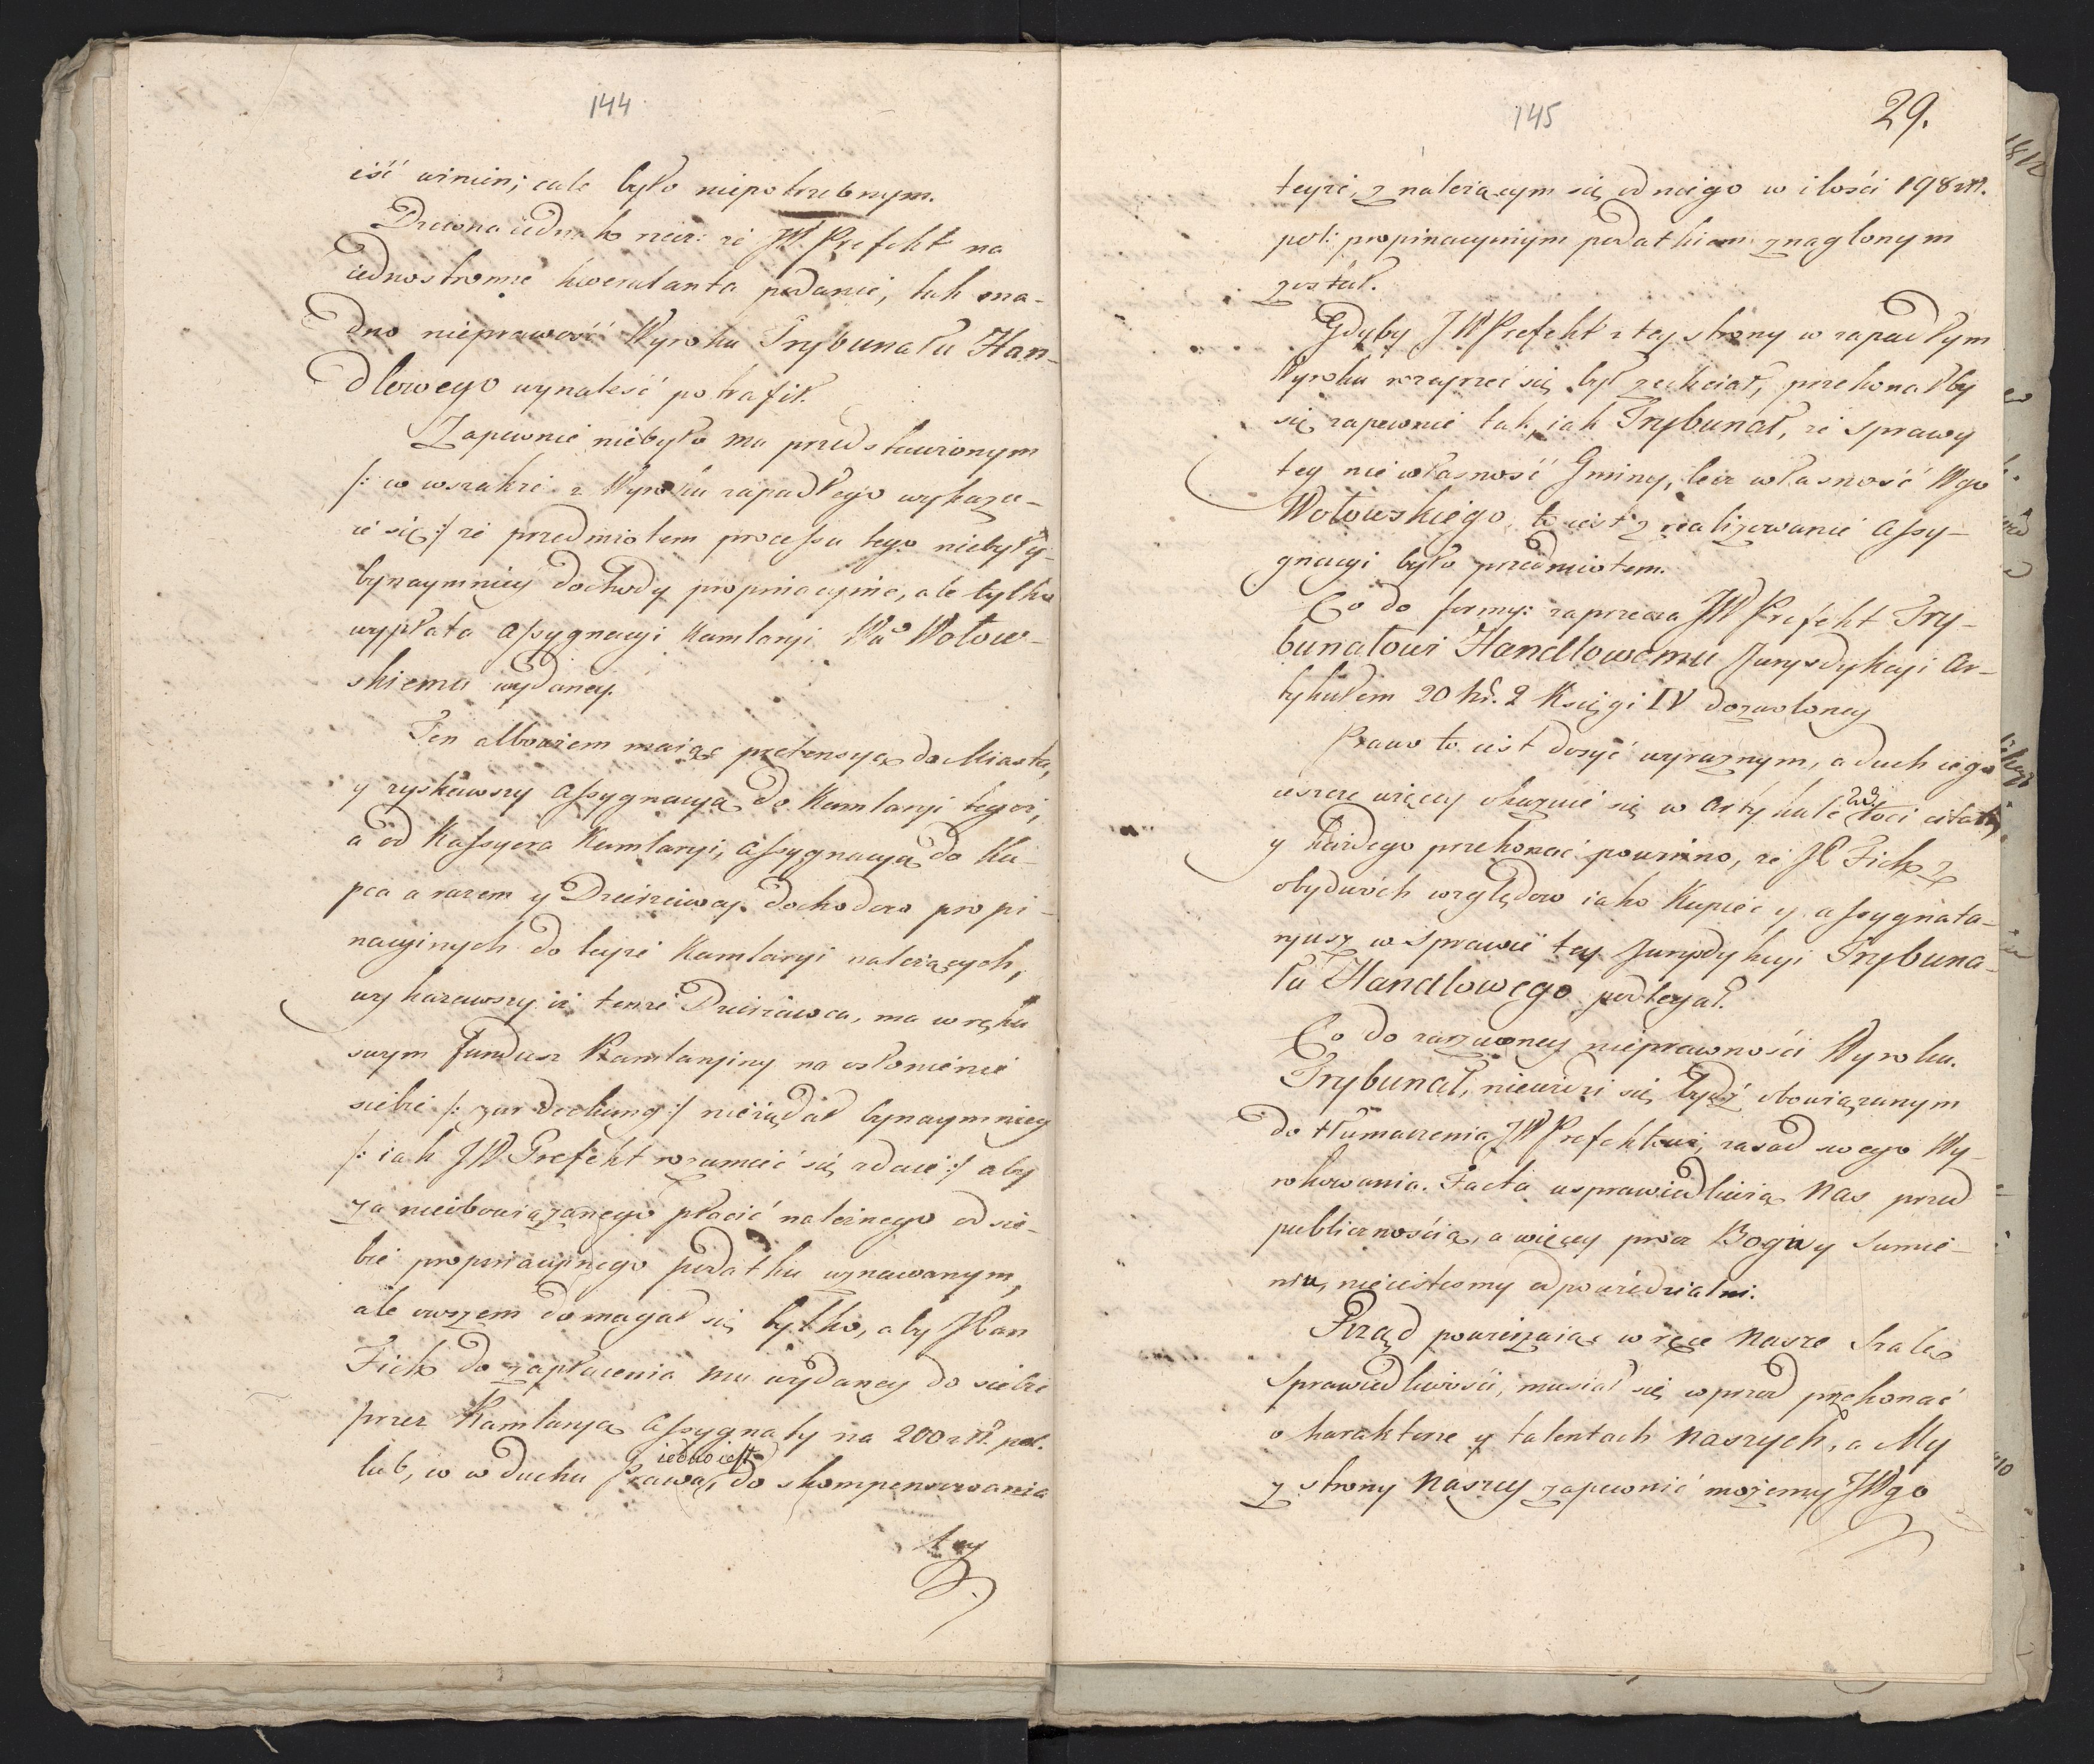 144
iść winien; cale było niepotrzebnym.
Dziwna iednak rzecz: że JW. Prefekt na
iednostronne kwerulanta podanie, tak sna-
dno nieprawość Wyroku Trybunału Han-
dlowego wynaleść potrafił.
Zapewnie niebyło mu przedstawionym
/: w wszakże z Wyroku zapadłego wykazu-
ie się :/ że przedmiotem processu tego niebyły
bynaymniey dochody propinacyine, ale tylko
wypłata assygnacyi Kamlaryi Wu Wołow-
skiemu wydaney.
Ten albowiem maiąc pretensyą do Miasta,
y zyskawszy assygnacyą do Kamlaryi tegoż,
a od Kassyera Kamlaryi, assygnacyą do Ku-
pca a razem y Dzierżawcy dochodow propi-
nacyinych do teyże Kamlaryi należących,
wykazawszy iż tenże Dzierżawca, ma w ręku
swym fundusz Kamlaryiny na osłonienie
siebie /: zur deckung :/ nieżądał bynaymniey
/: iak JW. Prefekt rozumieć się zdaie :/ aby
za nieobowiązanego płacić należnego od sie-
bie propinacyinego podatku uznawanym,
ale owszem domagał się tylko, aby JPan
Fick do zapłacenia mu wydaney do siebie
przez Kamlaryą assygnaty na 200 zł. pol.
iedno iest
lub, co w duchu Prawa, do skompensowania
tey
145
29.
teyże, z należącym się od niego w ilości 198 zł.
pol: propinacyinym podatkiem znaglonym
został.
Gdyby JW Prefekt z tey strony w zapadłym
Wyroku rozeyrzeć się był zechciał, przekonałby
się zapewnie tak, iak Trybunał, że sprawy
tey nie własność Gminy, lecz własność Wgo
Wołowskiego, to iest zrealizowanie assy-
gnacyi było przedmiotem.
Co do formy: zaprzecza JW Prefekt Try-
bunałowi Handlowemu Jurysdykcyi Ar-
tykułem 20 kś. 2 Księgi IV dozwoloney
Prawo to iest dosyć wyraznym, a duch iego
ieszcze więcey okazuie się w Artykule loci citati,
y każdego przekonać powinno, że JP Fick z
obydwoch względow iako Kupiec y assygnata-
ryusz w sprawie tey Jurysdykcyi Trybuna-
łu Handlowego podlegał.
Co do zarzuconey nieprawności Wyroku.
Trybunał, niewidzi się bydź obowiązanym
do tłumaczenia JW Prefektowi, zasad swego Wy-
rokowania. Facta usprawiedliwią nas przed
publicznością, a więcey procz Bogu y Sumie-
niu, nieiestesmy odpowiedzialni.
Rząd powierzaiąc w ręce nasze Szalę
Sprawiedliwości, musiał się wprzod przekonać
o karakterze y talentach naszych, a My
z strony naszey zapewnić możemy JWgo